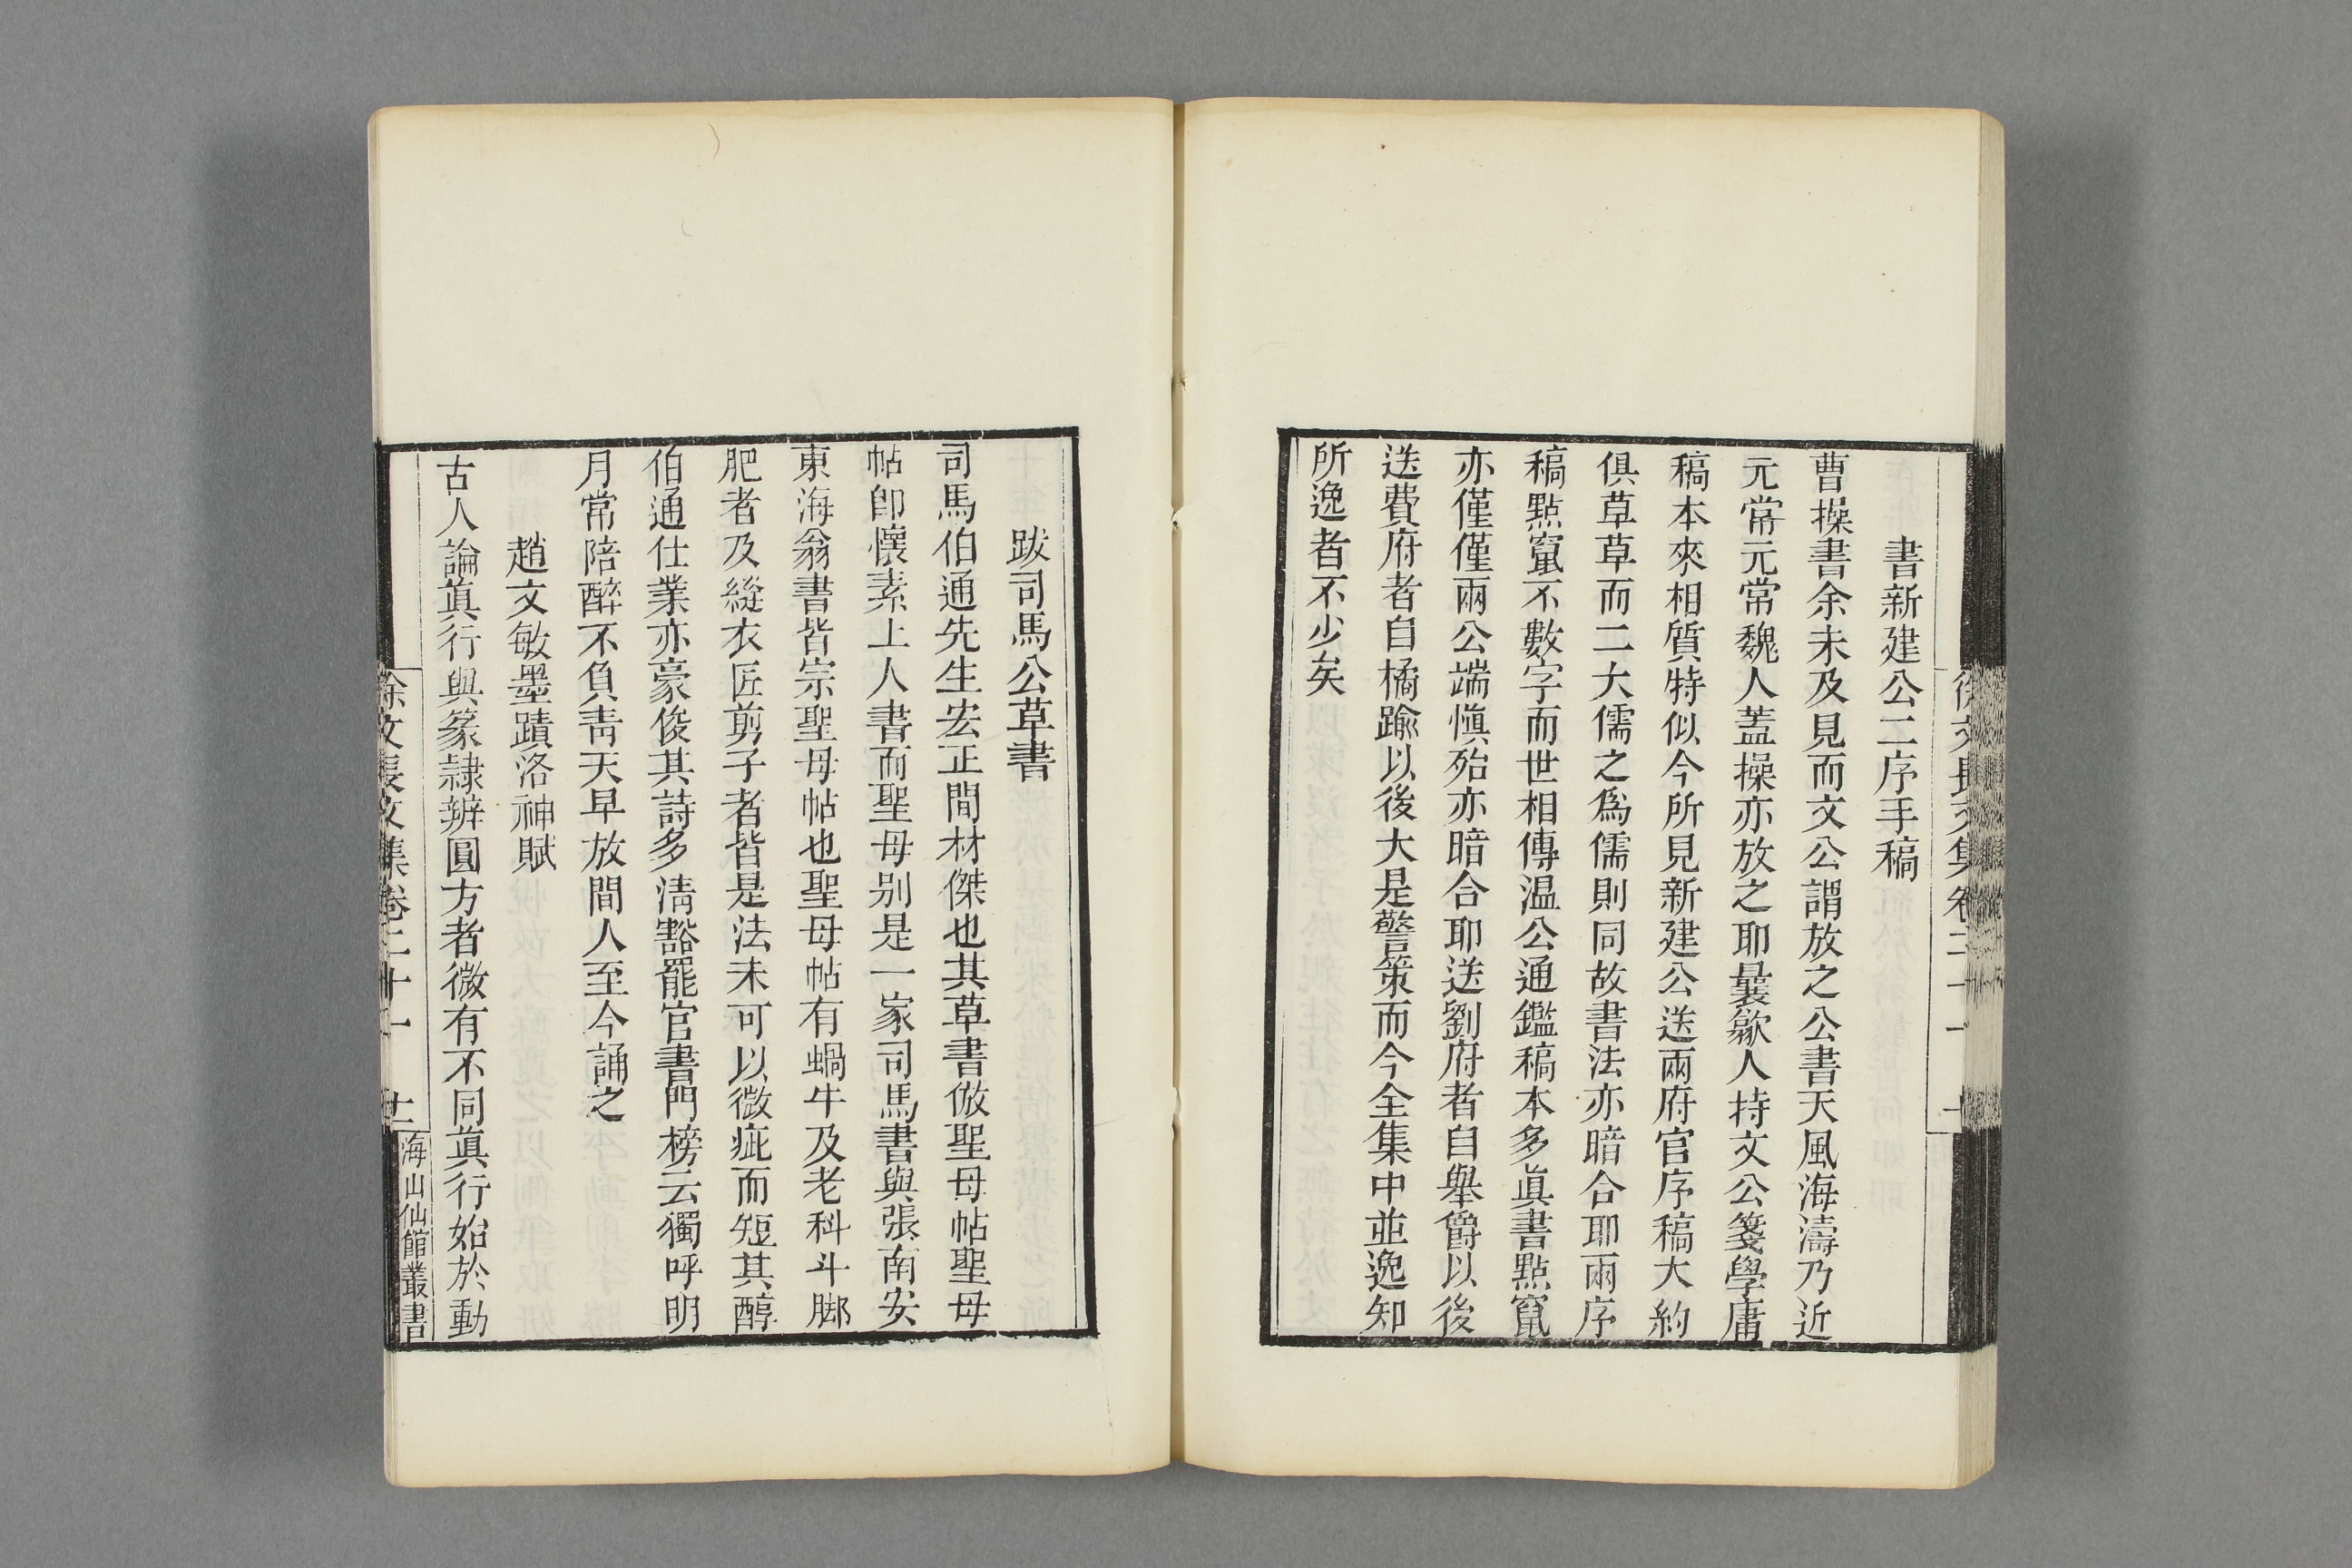 書新建公二序手稿
曹操書余未及見而文公謂放之公書天風海濤乃近
元常元常魏人蓋操亦放之耶曩歙人持文公箋學庸
稿本來相質特似今所見新建公送兩府官序稿大約
俱草草而二大儒之爲儒則同故書法亦暗合耶兩序
稿點竄不數字而世相傳温公通鑑稿本多眞書點竄
亦僅僅兩公端愼殆亦暗合耶送劉府者自舉爵以後
送費府者自橘踰以後大是警策而今全集中並逸知
所逸者不少矣
跋司馬公草書
司馬伯通先生宏正間材傑也其草書倣聖母帖聖母
帖卽懷素上人書而聖母别是一家司馬書與張南安
東海翁書皆宗聖母帖也聖母帖有蝸牛及老科斗脚
肥者及縫衣匠剪子者皆是法未可以微疵而短其醇
伯通仕業亦豪俊其詩多淸豁罷官書門榜云獨呼明
月常陪醉不負靑天早放間人至今誦之
趙文敏墨蹟洛神賦
古人論眞行與篆隷辨圓方者微有不同眞行始於動
徐文長文集卷二十一 十二 海山仙館叢書